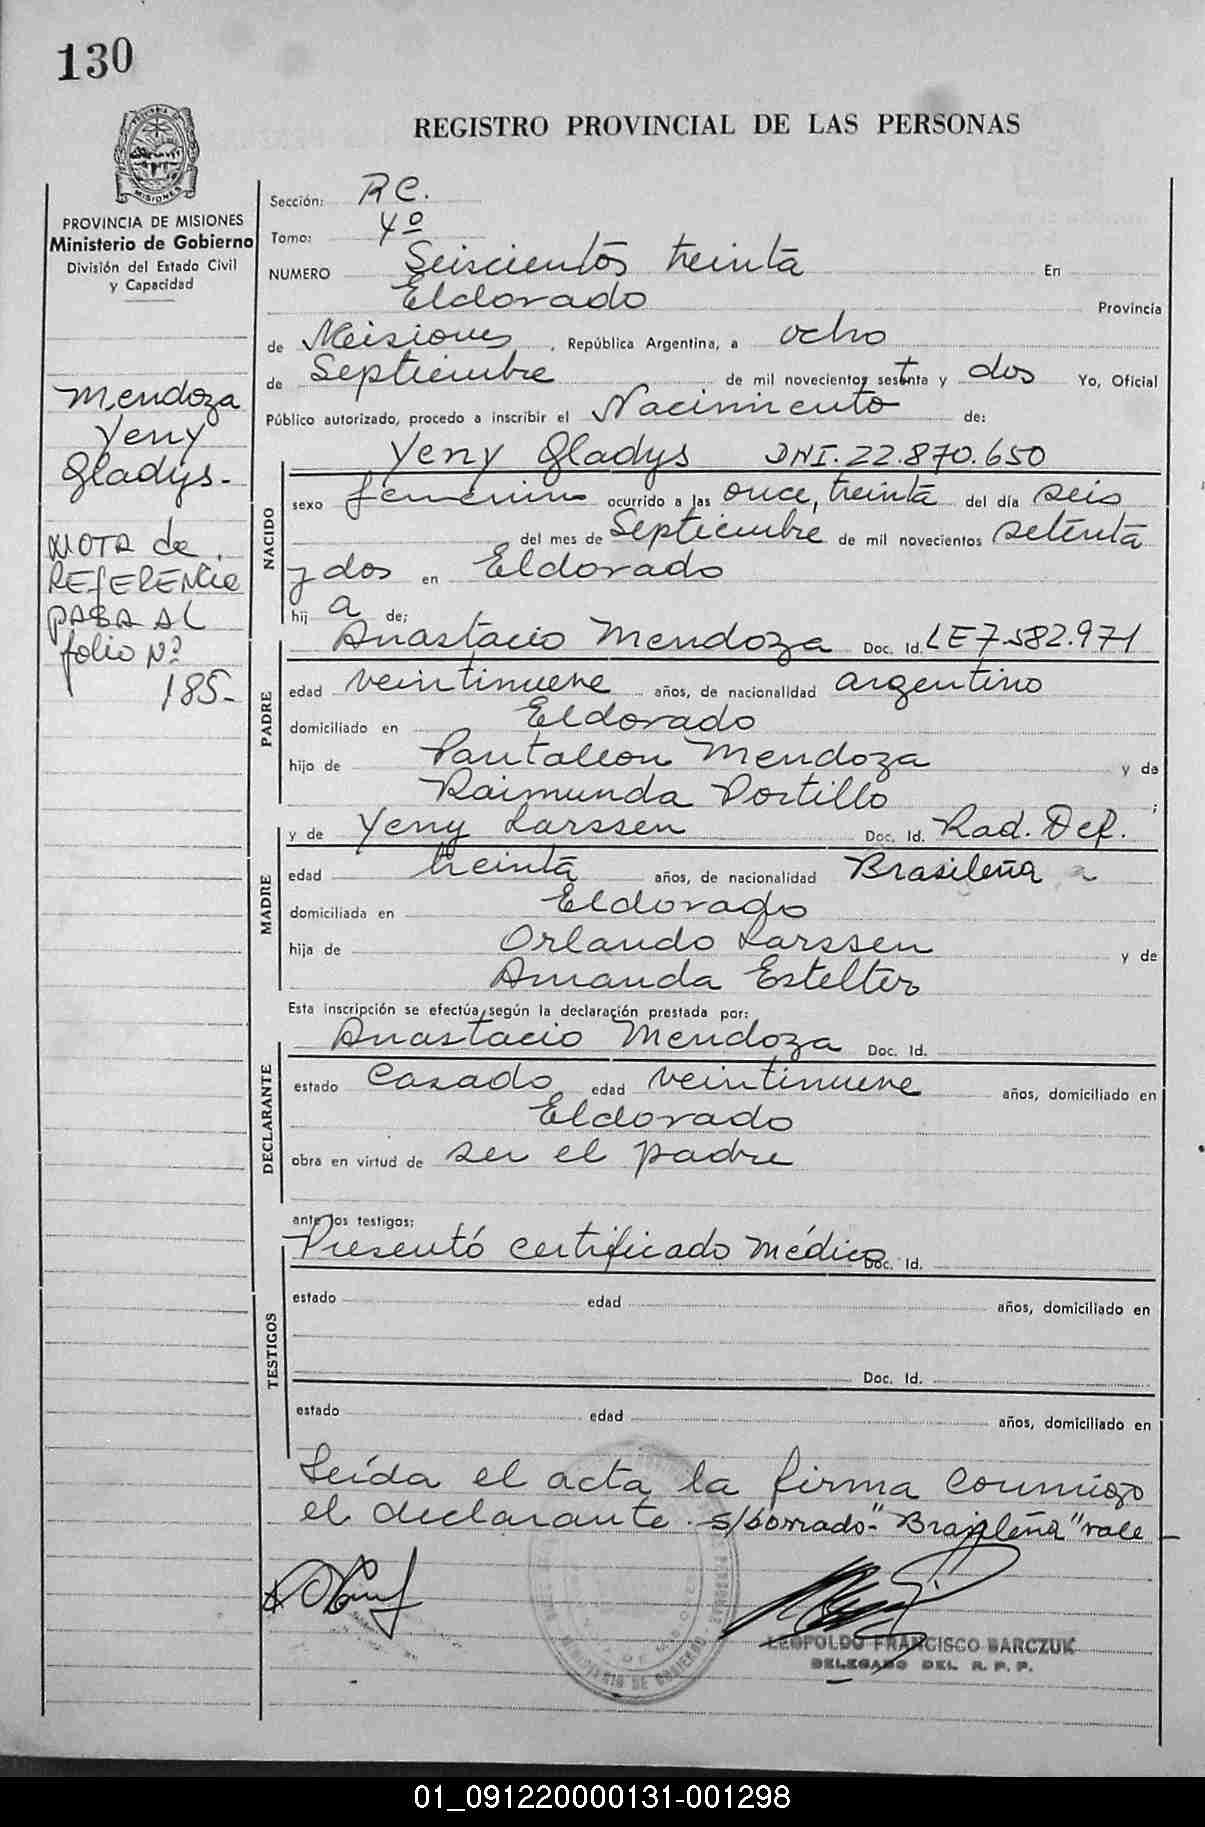 130
REGISTRO PROVINCIAL DE LAS PERSONAS
MISIONES
PROVINCIA DE MISIONES
Ministerio de Gobierno
División del Estado Civil
y Capacidad
Mendoza
Yeny
Gladys.-
NOTA de
REFERENCIA
PASA AL
folio Nº
185-
Sección: R C.
Tomo: 4º
NUMERO Seiscientos treinta En
Eldorado Provincia
de Misiones, República Argentina, a ocho
de Septiembre de mil novecientos setenta y dos Yo, Oficial
Público autorizado, procedo a inscribir el Nacimiento de:
Yeny Gladys DNI. 22.870.650
NACIDO
sexo femenino ocurrido a las once, treinta del día seis
del mes de Septiembre de mil novecientos setenta
y dos en Eldorado
hij a de:
Anastacio Mendoza Doc. Id. LE 7.582.971
PADRE
edad veintinueve años, de nacionalidad argentino
domiciliado en Eldorado
hijo de Pantaleon Mendoza y de
Raimunda Portillo ;
y de Yeny Larssen Doc. Id. Rad. Def.
MADRE
edad treinta años, de nacionalidad Brasileña
domiciliada en Eldorado
hija de Orlando Larssen y de
Amanda Estelter
Esta inscripción se efectúa según la declaración prestada por:
Anastacio Mendoza Doc. Id.
DECLARANTE
estado Casado edad veintinueve años, domiciliado en
Eldorado
obra en virtud de ser el padre
ante los testigos:
Presentó certificado médico Doc. Id.
TESTIGOS
estado edad años, domiciliado en
Doc. Id.
estado edad años, domiciliado en
Leída el acta la firma conmigo
el declarante. s/borrado-"Brasileña" vale-
LEOPOLDO FRANCISCO BARCZUK
DELEGADO DEL R. P. P.
MINISTERIO DE GOBIERNO
01_091220000131-001298